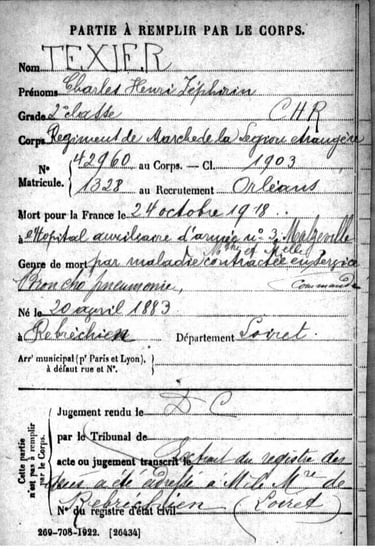 PARTIE À REMPLIR PAR LE CORPS.
Nom TEXIER
Prénoms Charles Henri Zéphirin
Grade 2e classe CHR
Corps Régiment de Marche de la Légion étrangère
N° 42960 au Corps. — Cl. 1903
Matricule. 1328 au Recrutement Orléans
Mort pour la France le 24 octobre 1918
à Hôpital auxiliaire d'armée n° 3, Malzéville
Meurthe et Mlle
Genre de mort par maladie contractée en service
Broncho pneumonie, commandé
Né le 20 avril 1883
à Rebréchien Département Loiret.
Arr' municipal (p' Paris et Lyon),
à défaut rue et N°.
Cette partie
n'est pas à remplir
par le Corps.
Jugement rendu le D C
par le Tribunal de
acte ou jugement transcrit le Extrait du registre des
a été adressé à M. le Mre de
Rebréchien (Loiret)
N° du registre d'état civil
269-708-1922. [26434]